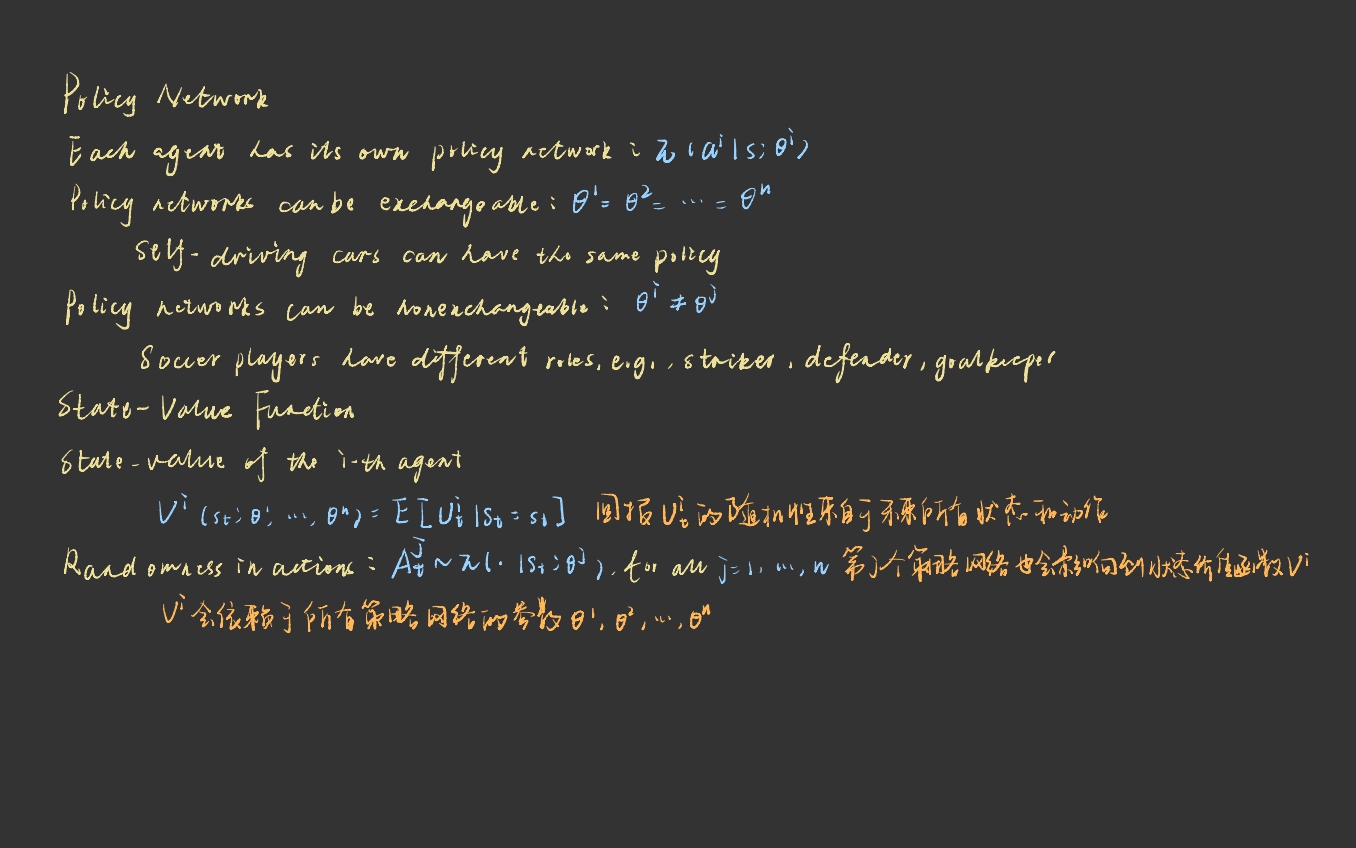 Policy Network
Each agent has its own policy network : π(aⁱ|s; θⁱ)
Policy networks can be exchangeable : θ¹ = θ² = ... = θⁿ
Self-driving cars can have the same policy
Policy networks can be nonexchangeable : θⁱ ≠ θʲ
Soccer players have different roles, e.g., striker, defender, goalkeeper
State-Value Function
State-value of the i-th agent
Vⁱ(sₜ; θ¹, ..., θⁿ) = E[Uₜⁱ | Sₜ = sₜ] 回报Uₜⁱ的随机性来自于未来所有状态和动作
Randomness in actions : Aₜʲ ~ π(· | sₜ; θʲ), for all j=1, ..., n 第j个策略网络也会影响到状态价值函数Vⁱ
Vⁱ会依赖于所有策略网络的参数θ¹, θ², ..., θⁿ